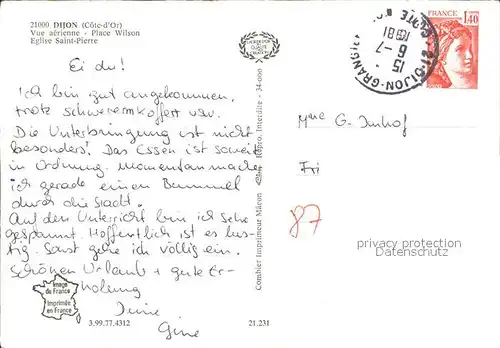 21000 DIJON (Côte-d'Or)
Vue aérienne - Place Wilson
Eglise Saint-Pierre
Ei du!
Ich bin gut angekommen,
trotz schwerem Koffer usw.
Die Unterbringung ist nicht
besonders! Das Essen ist soweit
in Ordnung. Momentan mache
ich gerade einen Bummel
durch die Stadt.
Auf den Unterricht bin ich sehr
gespannt. Hoffentlich ist es lus-
tig. Sonst gehe ich völlig ein.
Schönen Urlaub + gute Er-
holung
Deine
Gine
Image
de France
Imprimée
en France
3.99.77.4312
21.231
Combier Imprimeur Mâcon
Repro. Interdite - 34-000
21-DIJON-GRANGIER
15 H
6-7
1981
1,40
Mme G. Imhof
Fri
87
privacy protection
Datenschutz